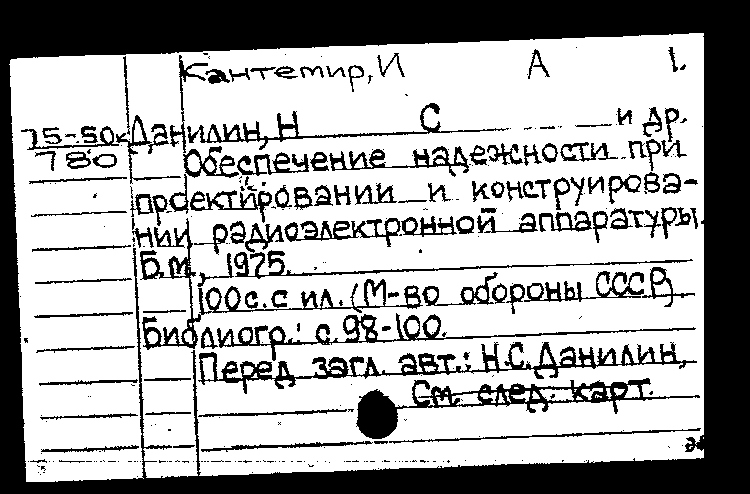 Кантемир, И А 1.
75-50к Данилин, Н С и др.
780 Обеспечение надежности при
проектировании и конструирова-
нии радиоэлектронной аппаратуры.
Б.м., 1975.
100с. с ил. (М-во обороны СССР).
Библиогр.: с. 98-100.
Перед загл. авт.: Н.С. Данилин,
См. след. карт.